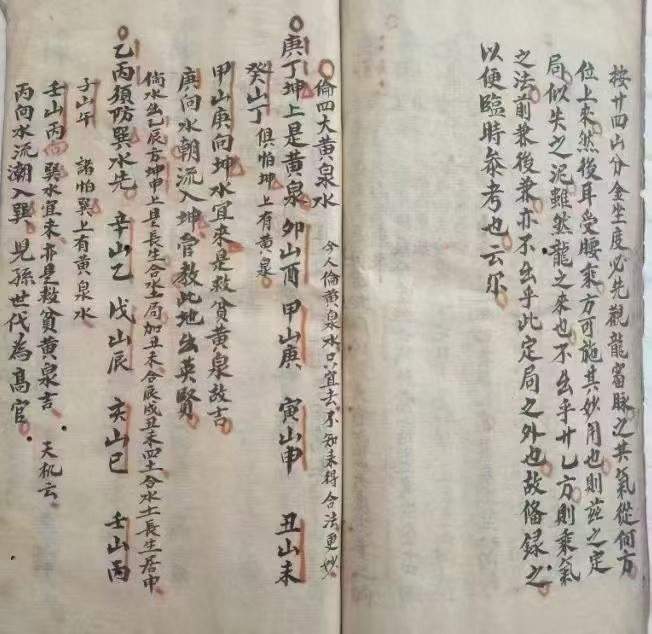 按廿四山分金坐度必先觀龍審脉之共氣從何方
位上來然後耳受腰乘方可施其妙用也則茲之定
局似失之泥雖然龍之來也不出乎廿乙方則乘氣
之法前兼後兼亦不出乎此定局之外也故俻錄之
以便臨時參考也云尔
倫四大黃泉水 今人倫黃泉水只宜去不知来得合法更妙
庚丁坤上是黃泉 卯山酉 甲山庚 寅山申 丑山未
癸山丁 俱怕坤上有黃泉
甲山庚向坤水宜来是救貧黃泉故吉
庚向水朝流入坤管教此地出英賢
倘水出乙辰方坤申上是長生合水局加丑未合辰戍丑未四土合水土長生居申
乙丙須防巽水先 辛山乙 戊山辰 亥山巳 壬山丙
子山午 諸怕巽上有黃泉水
壬山丙向巽水宜来亦是救貧黃泉吉 天机云
丙向水流潮入巽 見孫世代為高官